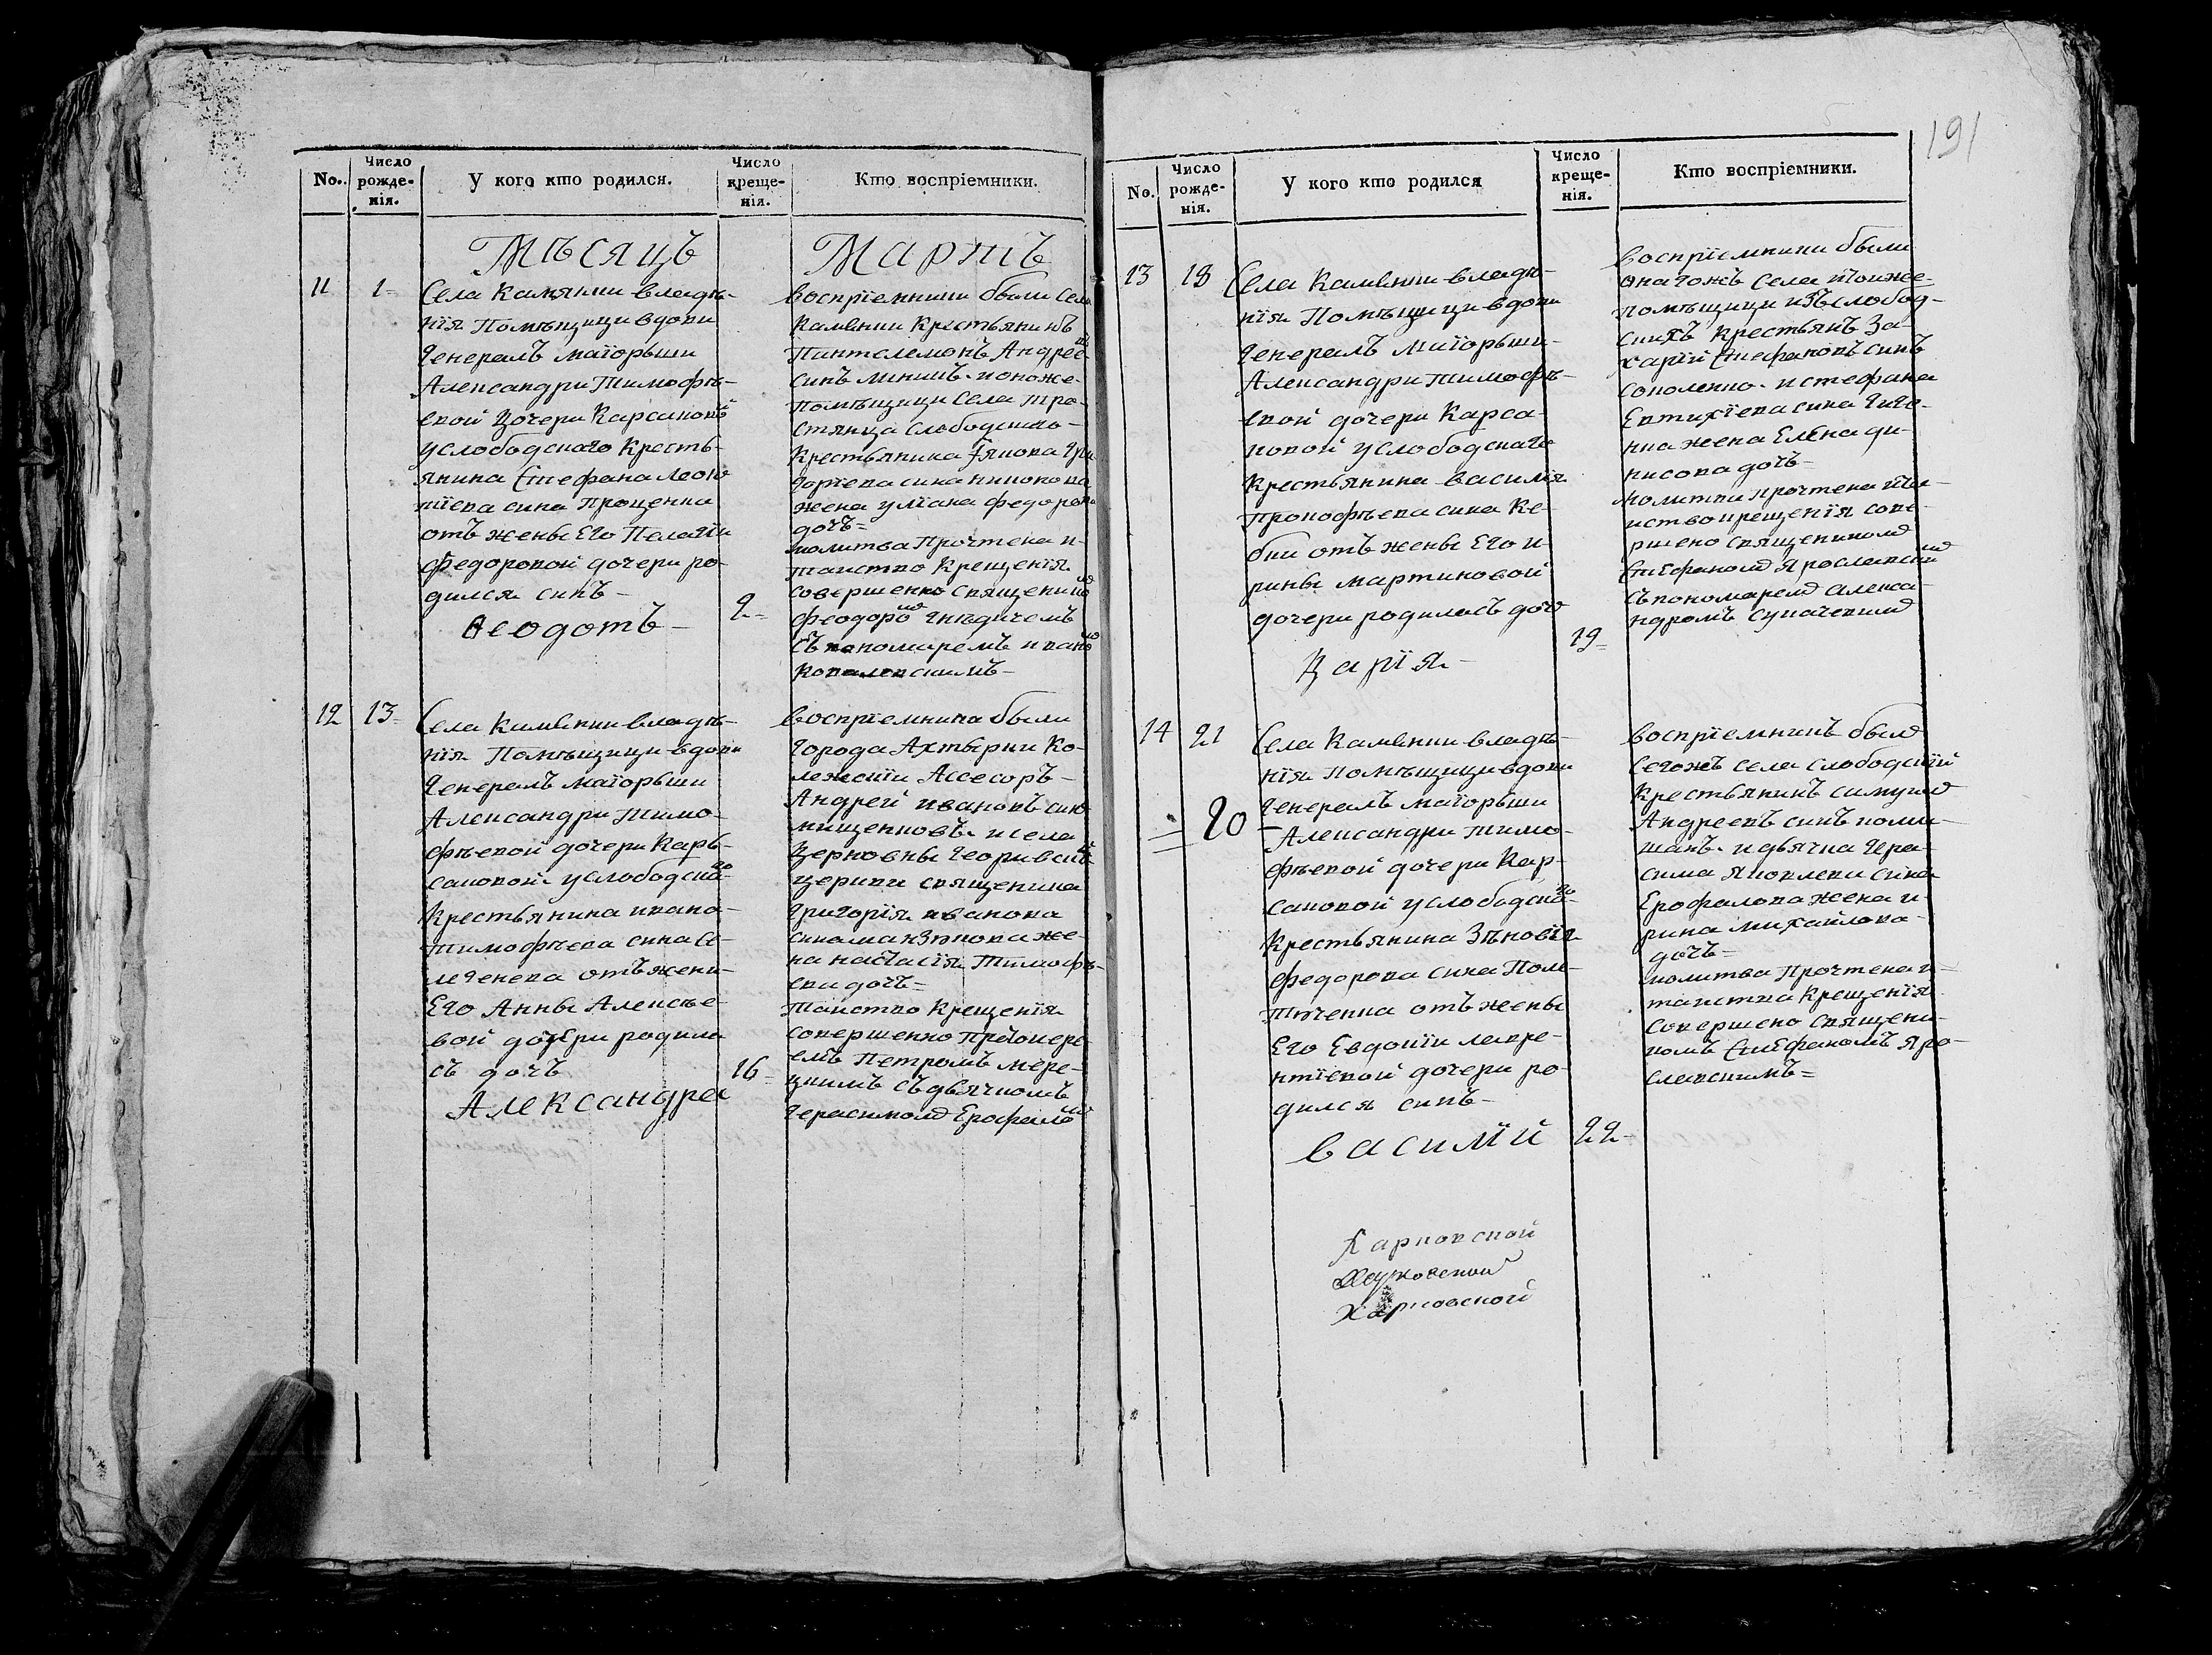 191
No.
Число рожде-нія.
У кого кто родился.
Число креще-нія.
Кто воспріемники.
Мѣсяцъ
Мартъ
11
1
Села Камянки владѣ-
нія Помѣщици вдови
Генералъ маіорьши
Александри Тимофѣ-
евой дочери Карсаковой
у слободскаго кресть-
янина Стефана Леон
тіева сина Проценка
отъ жены Его Пелагіи
Федоровой дочери ро-
дился синъ
Ѳеодотъ
2
воспріемники были Села
Каменки крестьянинъ
Пантелемонъ Андрее
синъ
помѣщици Села Тро-
стянца слободскаго
крестьянина Якова Гри
горіева сина
жена уліана федорова
дочъ
молитва прочтена и
таинство крещенія
совершенно священико
феодоро Гнѣдичемъ
съ пономаремъ ивано
ковалевскимъ
12
13
Села каменки владѣ-
нія Помѣщици вдови
Генералъ маіорьши
Александри Тимо-
фѣевой дочери Карь-
саковой у слободска го
крестьянина ивана
тимофѣева сина Се-
легенева отъ жени
Его Анны Алексѣе
вой дочери родила
съ дочъ
Александра
16
воспріемника были
города Ахтырки Ко-
лежскіи Асесоръ
Андрей ивановъ синъ
мищенковъ и села
церковны Георгіевск
церкви священика
григорія иванова
сина жe-
на настасія Тимофѣ-
ева дочъ
таинство крещенія
совершенно Протоиере-
емъ Петромъ
съ дьячкомъ
Герасимомъ Ерофало
No.
Число рожде-нія.
У кого кто родился
Число креще-нія.
Кто воспріемники.
13
18
Села Каменки владѣ-
нія Помѣщици вдови
Генералъ маіорьши
Александри тимофѣ-
евой дочери Карса-
ковой у слободскаго
крестьянина василія
Прокофѣева сина Ке-
бки отъ жены Его и-
рины мартиновой
дочери родиласъ доч
Дарія
19
воспріемники были
онагожъ села тоиже
помѣщици изъ слобод-
скихъ крестьянъ За-
харій Стефановъ синъ
Соколенко и стефана
Евтихіева сина
жена Елена ди-
нисова дочъ
молитва прочтена таи-
нство крещенія сове-
ршено священикомъ
Стефаномъ Ярославски
съ пономаремъ алекса
ндромъ
14
21
20
Села Каменки владѣ-
нія помѣщици вдови
Генералъ маіорьши
Александри тимо-
фѣевой дочери Кар-
саковой у слободска го
крестьянина Зѣновія
федорова сина Пола-
тченка отъ жены
Его Евдокіи лавре-
нтіевой дочери ро-
дился синъ
василій
22
воспріемникъ былъ
сегожъ села слободскій
крестьянинъ
Андреевъ синъ
и дьячка Гера-
сима Яковлева сина
Ерофалова жена и-
рина михайлова
дочъ
молитва прочтена и
таинства крещенія
совершено священи-
комъ Стефаномъ Яро-
славскимъ
Харковской
Харковской